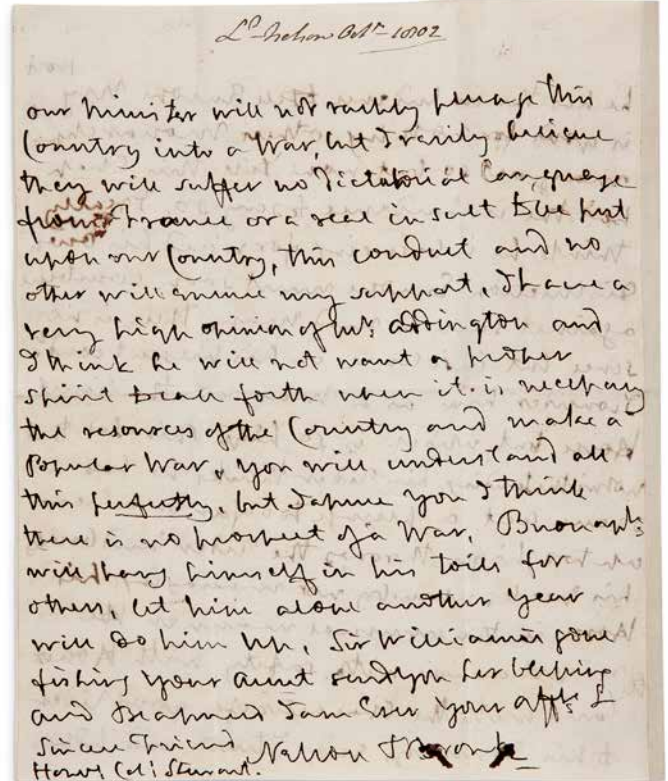 Ld. Nelson Octr. 1802
our Minister will not rashly plunge this
Country into a War, but I really believe
they will suffer no Dictatorial Language
from France or a real insult to be put
upon our Country, this conduct and no
other will ensure my support, I have a
very high opinion of Mr. Addington and
I think he will not want a proper
spirit to call forth when it is necessary
the resources of the Country and make a
Popular War, you will understand all
this perfectly, but I assure you I think
there is no prospect of a War, Buonapte
will hang himself in his toils for
others, let him alone another year
will do him up, Sir William is gone
fishing your Aunt sends you her blessing
and I am Ever your affte. &
Sincere Friend Nelson & Bronte
Honbl. Col: Stewart.